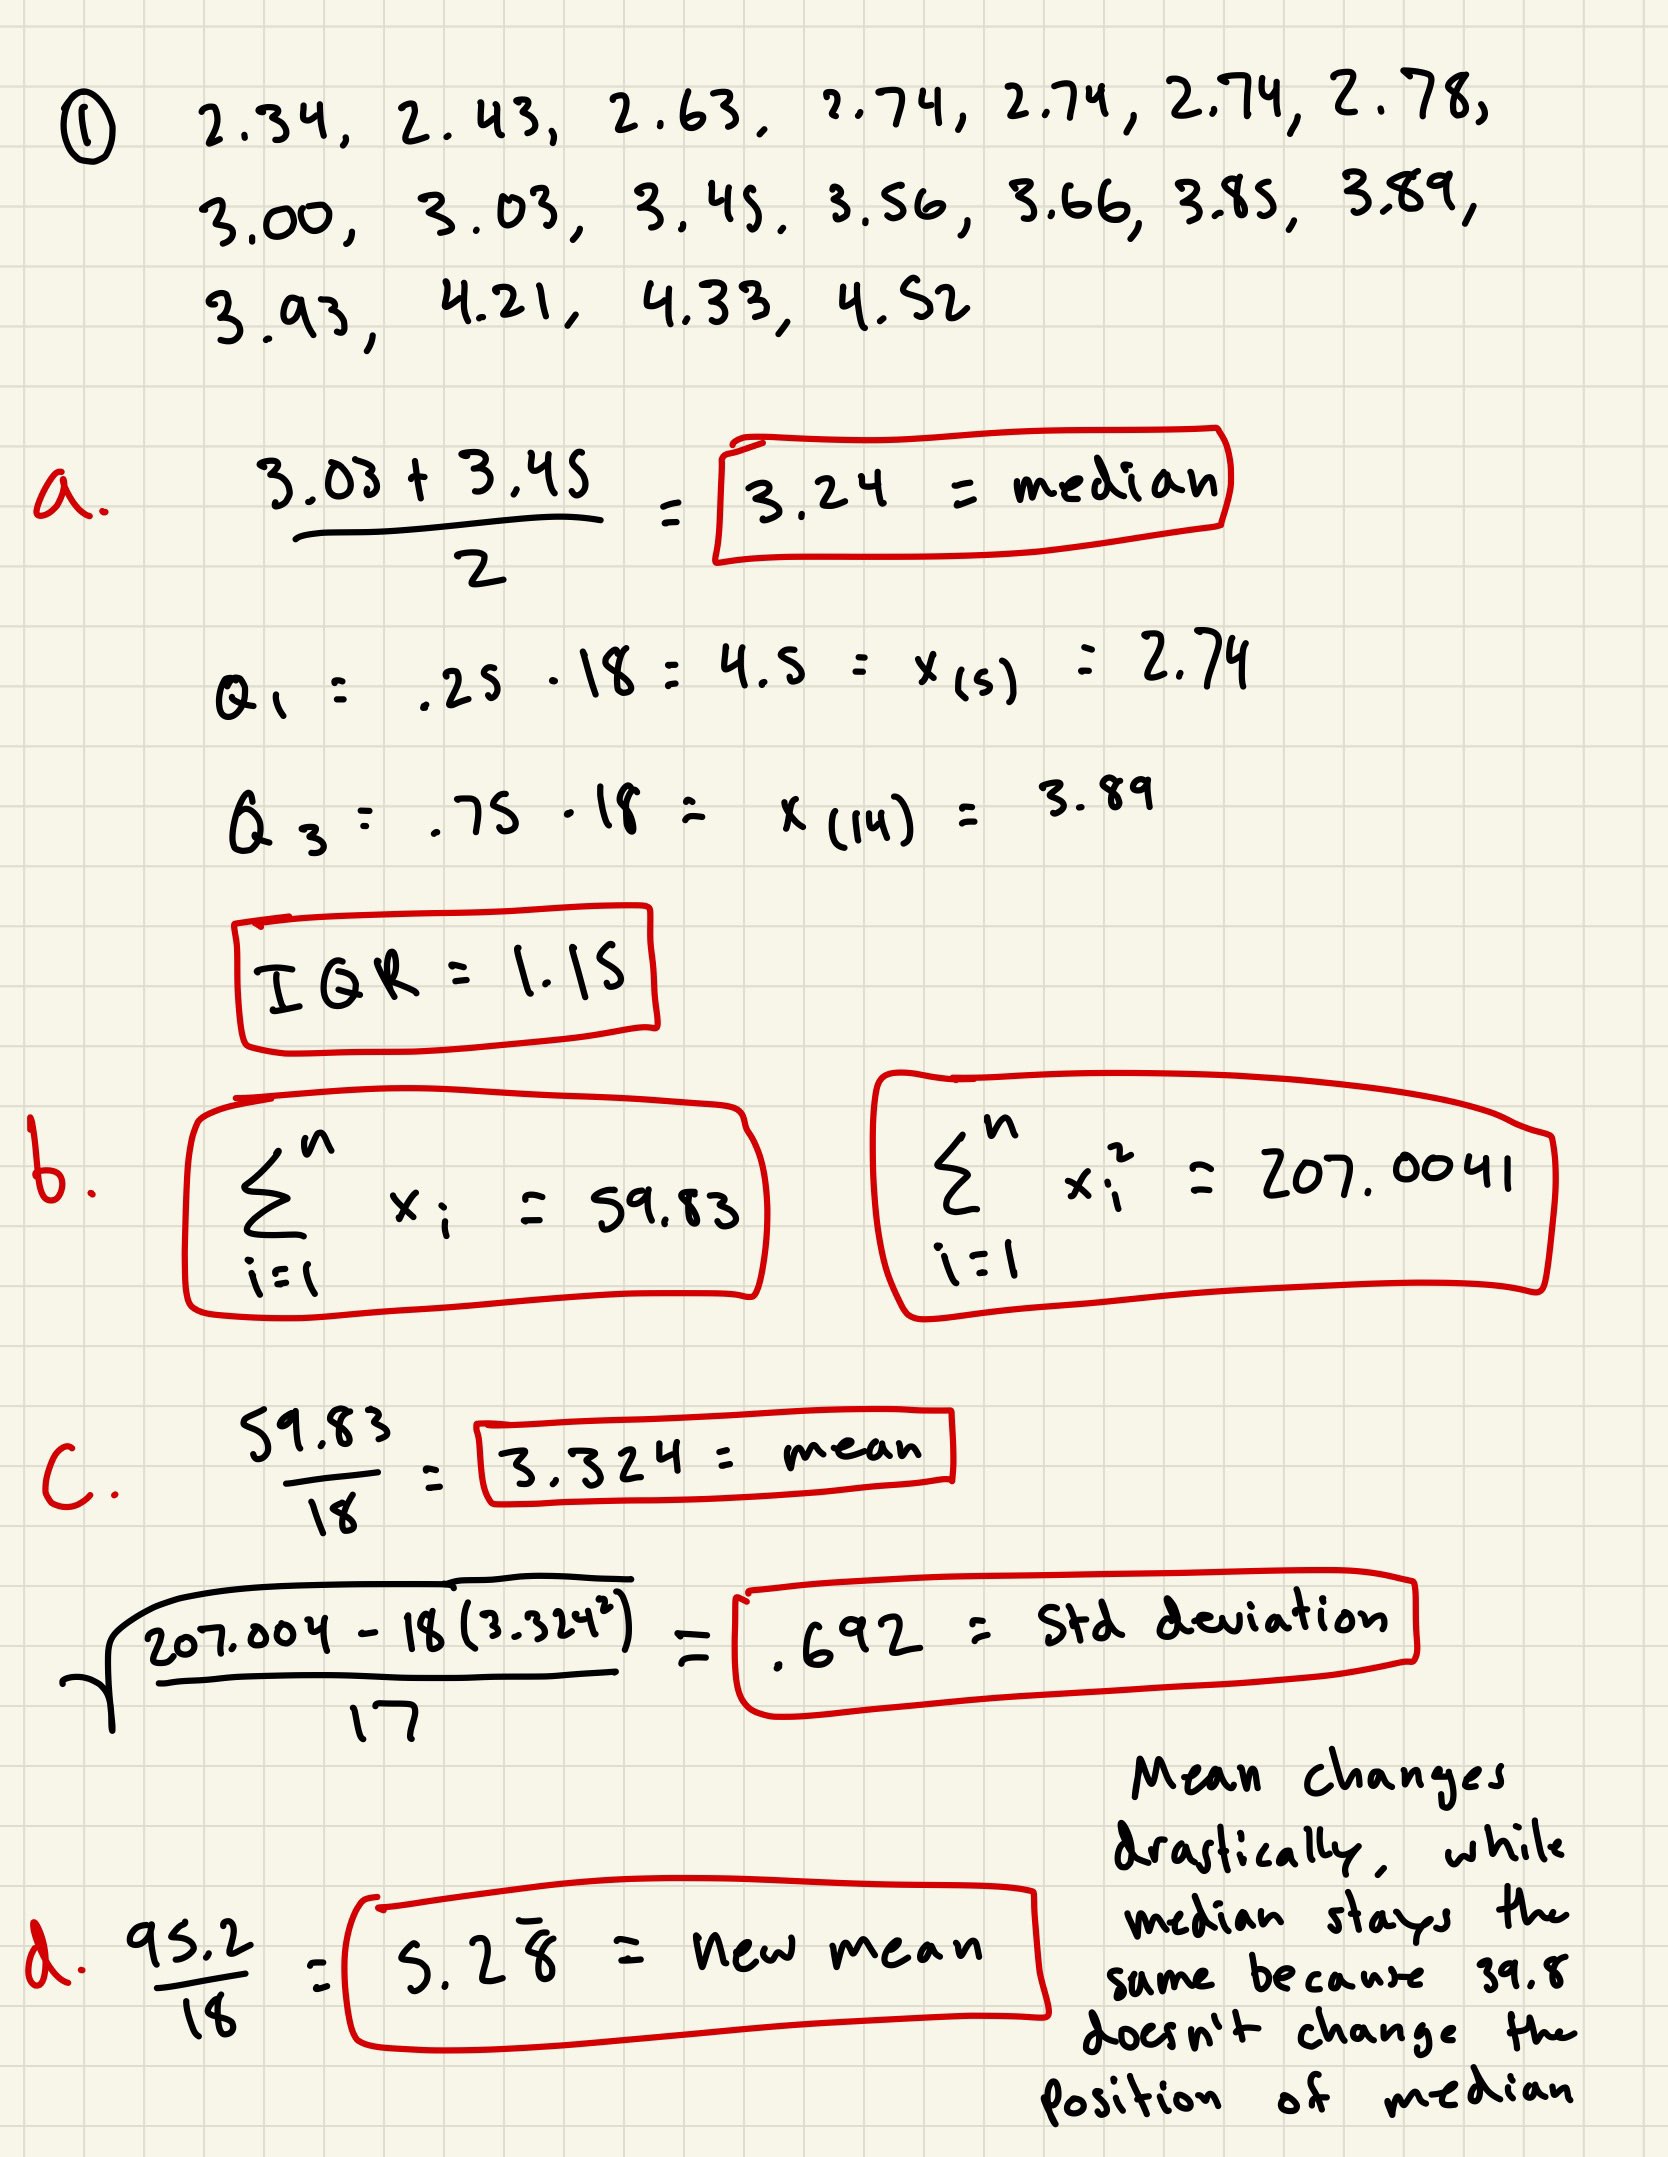 ① 2.34, 2.43, 2.63, 2.74, 2.74, 2.74, 2.78,
3.00, 3.03, 3.45, 3.56, 3.66, 3.85, 3.89,
3.93, 4.21, 4.33, 4.52
a. (3.03 + 3.45)/2 = 3.24 = median
Q₁ = .25 · 18 = 4.5 = x₍₅₎ = 2.74
Q₃ = .75 · 18 = x₍₁₄₎ = 3.89
IQR = 1.15
b. ∑ⁿᵢ₌₁ xᵢ = 59.83 ∑ⁿᵢ₌₁ xᵢ² = 207.0041
c. 59.83/18 = 3.324 = mean
√((207.004 - 18(3.324²))/17) = .692 = Std deviation
d. 95.2/18 = 5.28̅ = new mean
Mean changes
drastically, while
median stays the
same because 39.8
doesn't change the
position of median